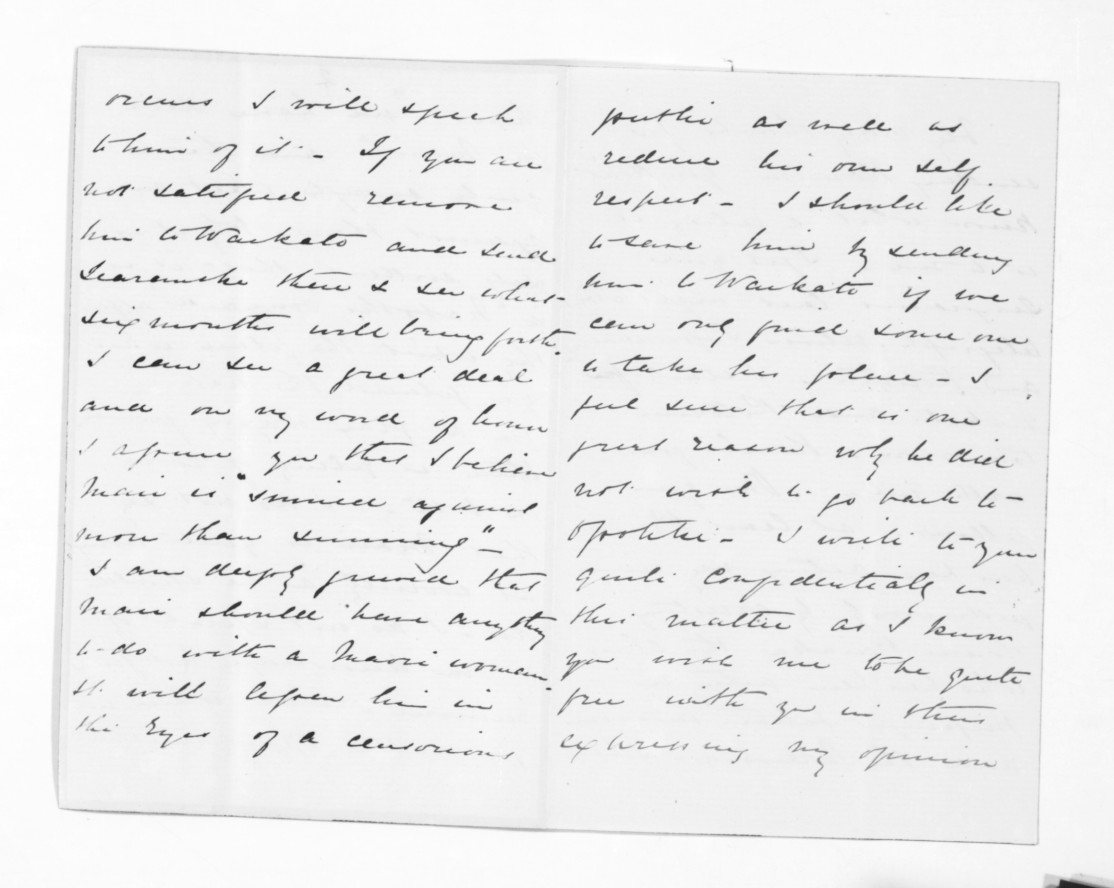 occurs I will speak
to him of it - If you are
not satisfied remove
him to Waikato and send
Searancke there & see what
six months will bring forth.
I can see a great deal
and on my word of honor
I assure you that I believe
Mair is "sinned against
more than sinning" -
I am deeply grieved that
Mair should have anything
to do with a Maori woman
it will lessen him in
the Eyes of a censorious
public as well as
reduce his own self
respect - I should like
to save him by sending
him to Waikato if we
can only find some one
to take his place - I
feel sure that is one
great reason why he did
not wish to go back to
Opotiki - I write to you
quite confidentially in
this matter as I know
you wish me to be quite
free with you in thus
expressing my opinion